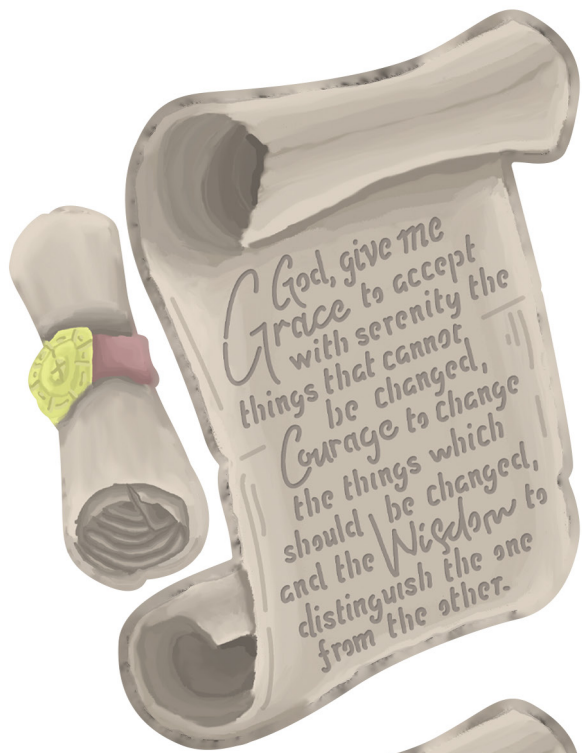 God, give me
Grace to accept
with serenity the
things that cannot
be changed,
Courage to change
the things which
should be changed,
and the Wisdom to
distinguish the one
from the other.